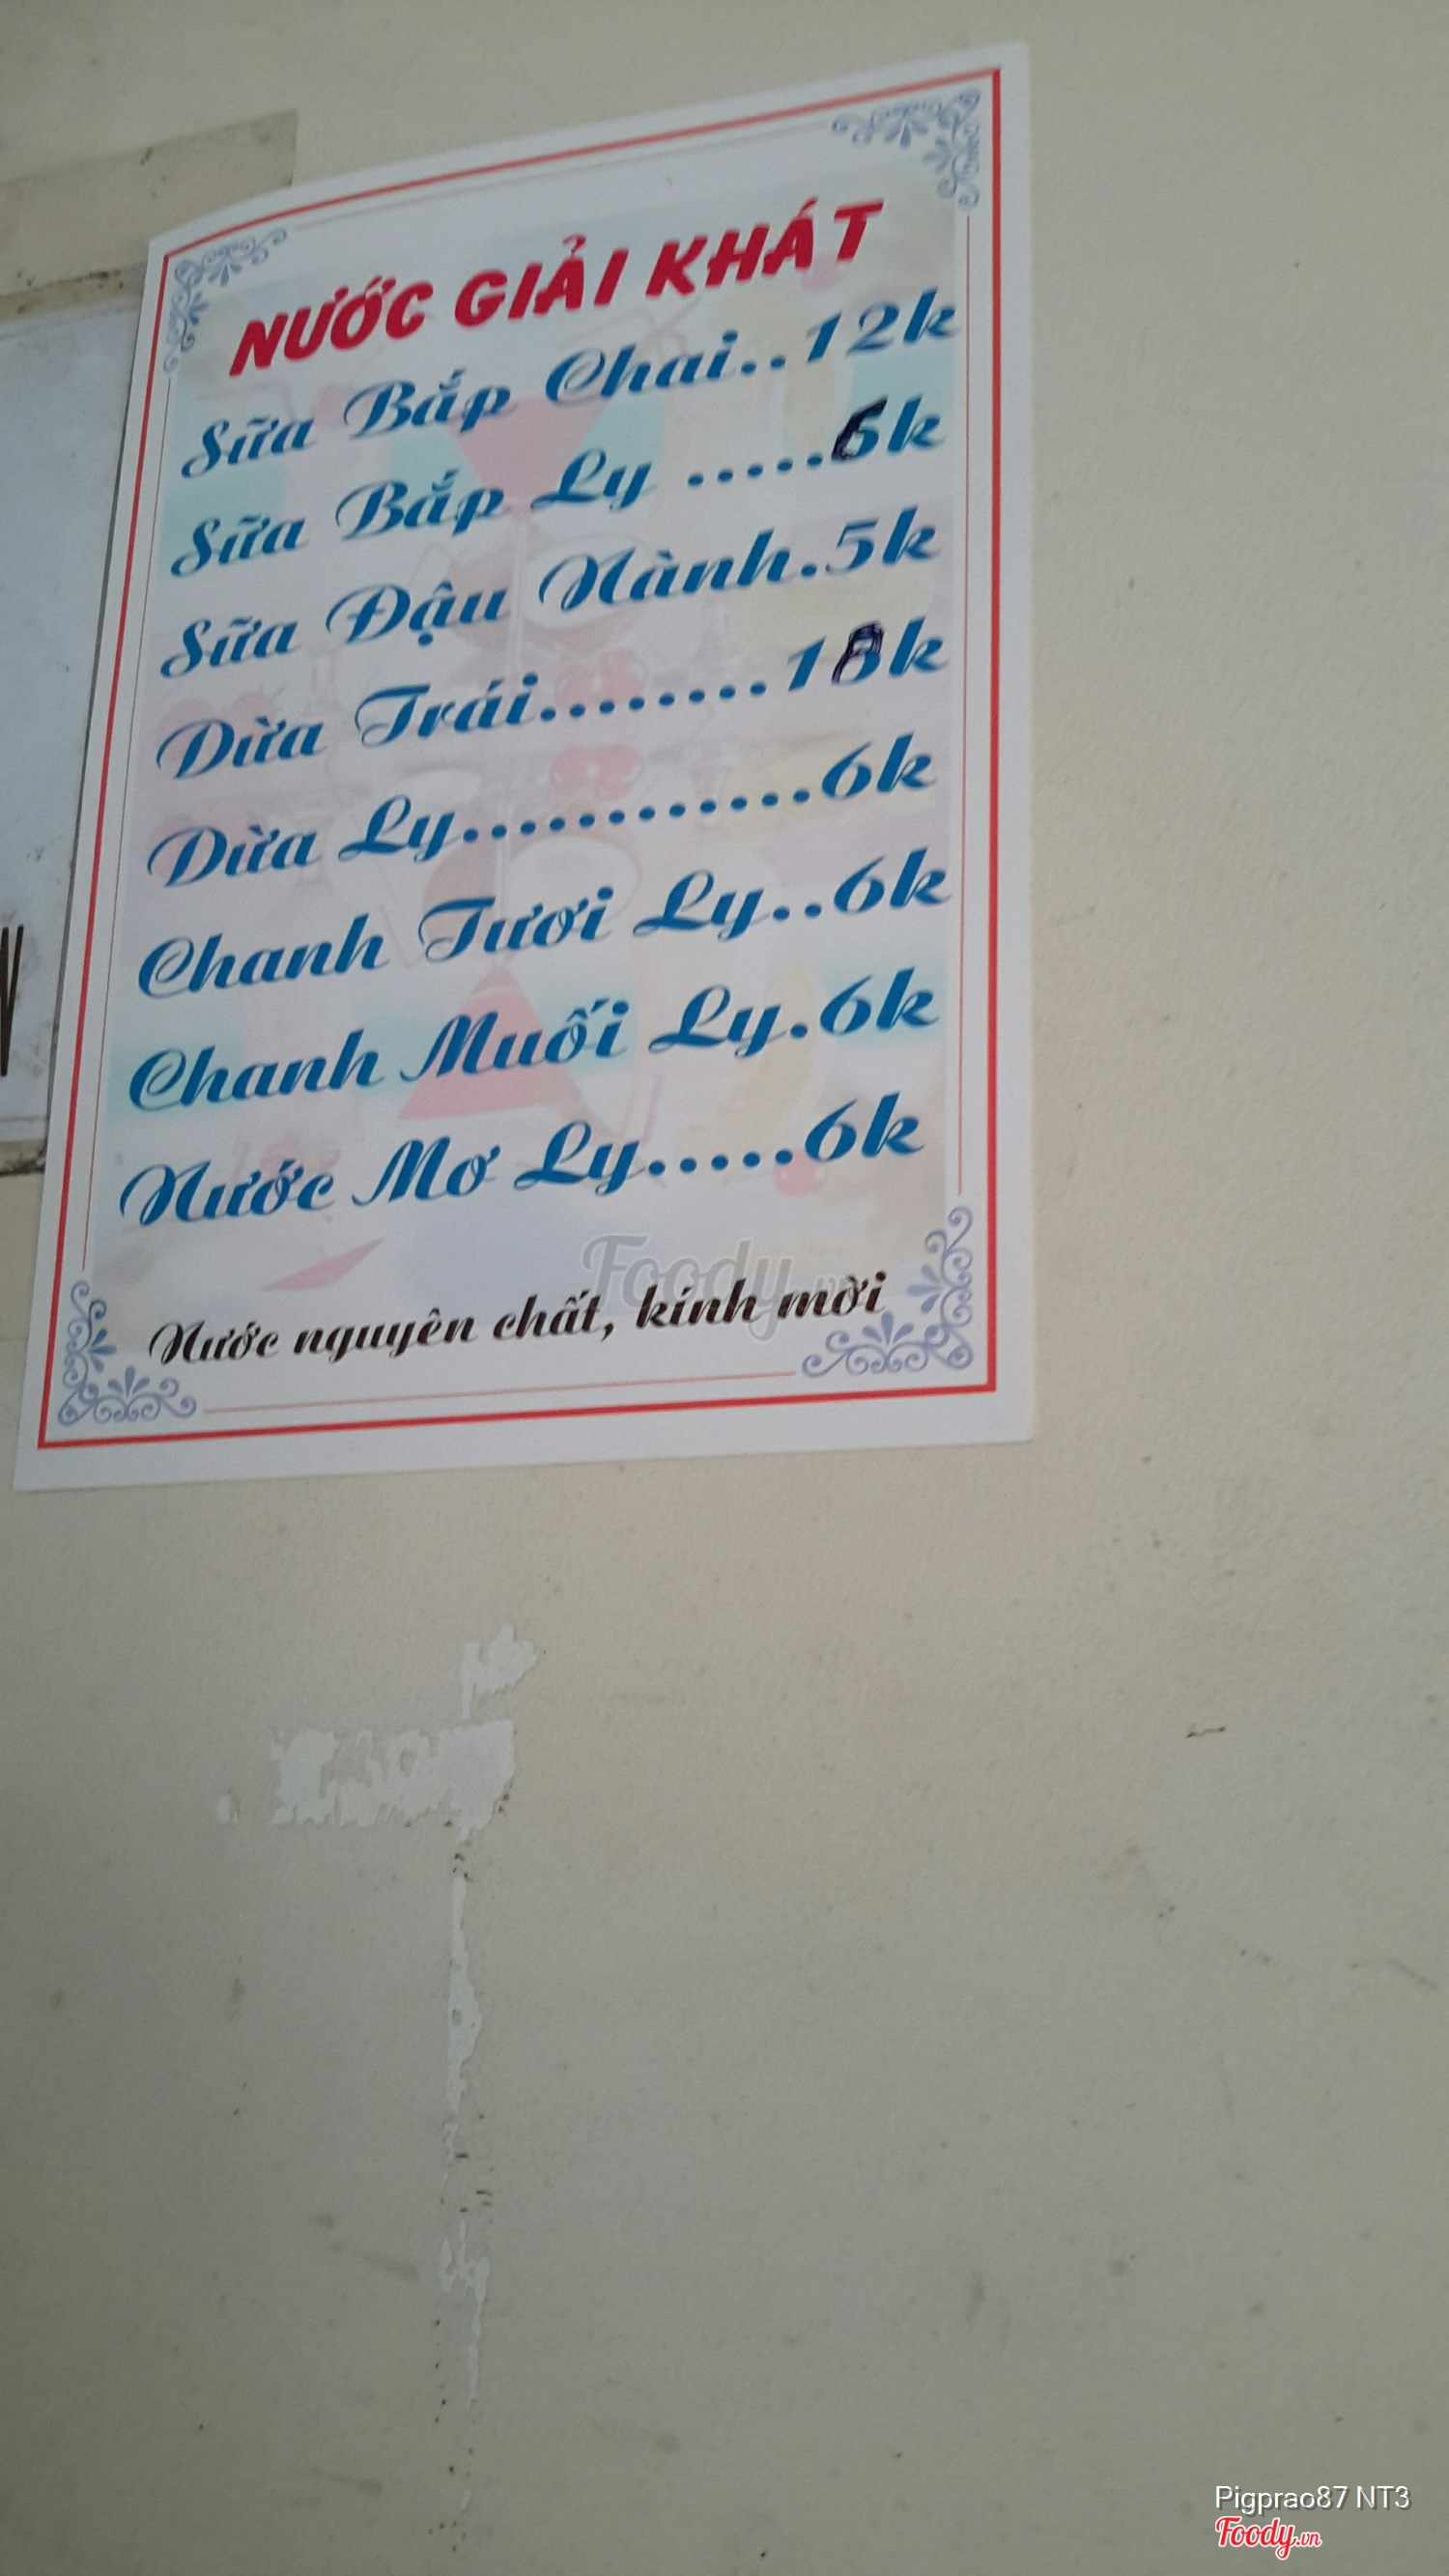 NƯỚC GIẢI KHÁT
Sữa Bắp Chai..12k
Sữa Bắp Ly .....6k
Sữa Đậu Nành.5k
Dừa Trái........18k
Dừa Ly............6k
Chanh Tươi Ly..6k
Chanh Muối Ly.6k
Nước Mơ Ly.....6k
Nước nguyên chất, kính mời
Foody.vn
Pigprao87 NT3
Foody.vn